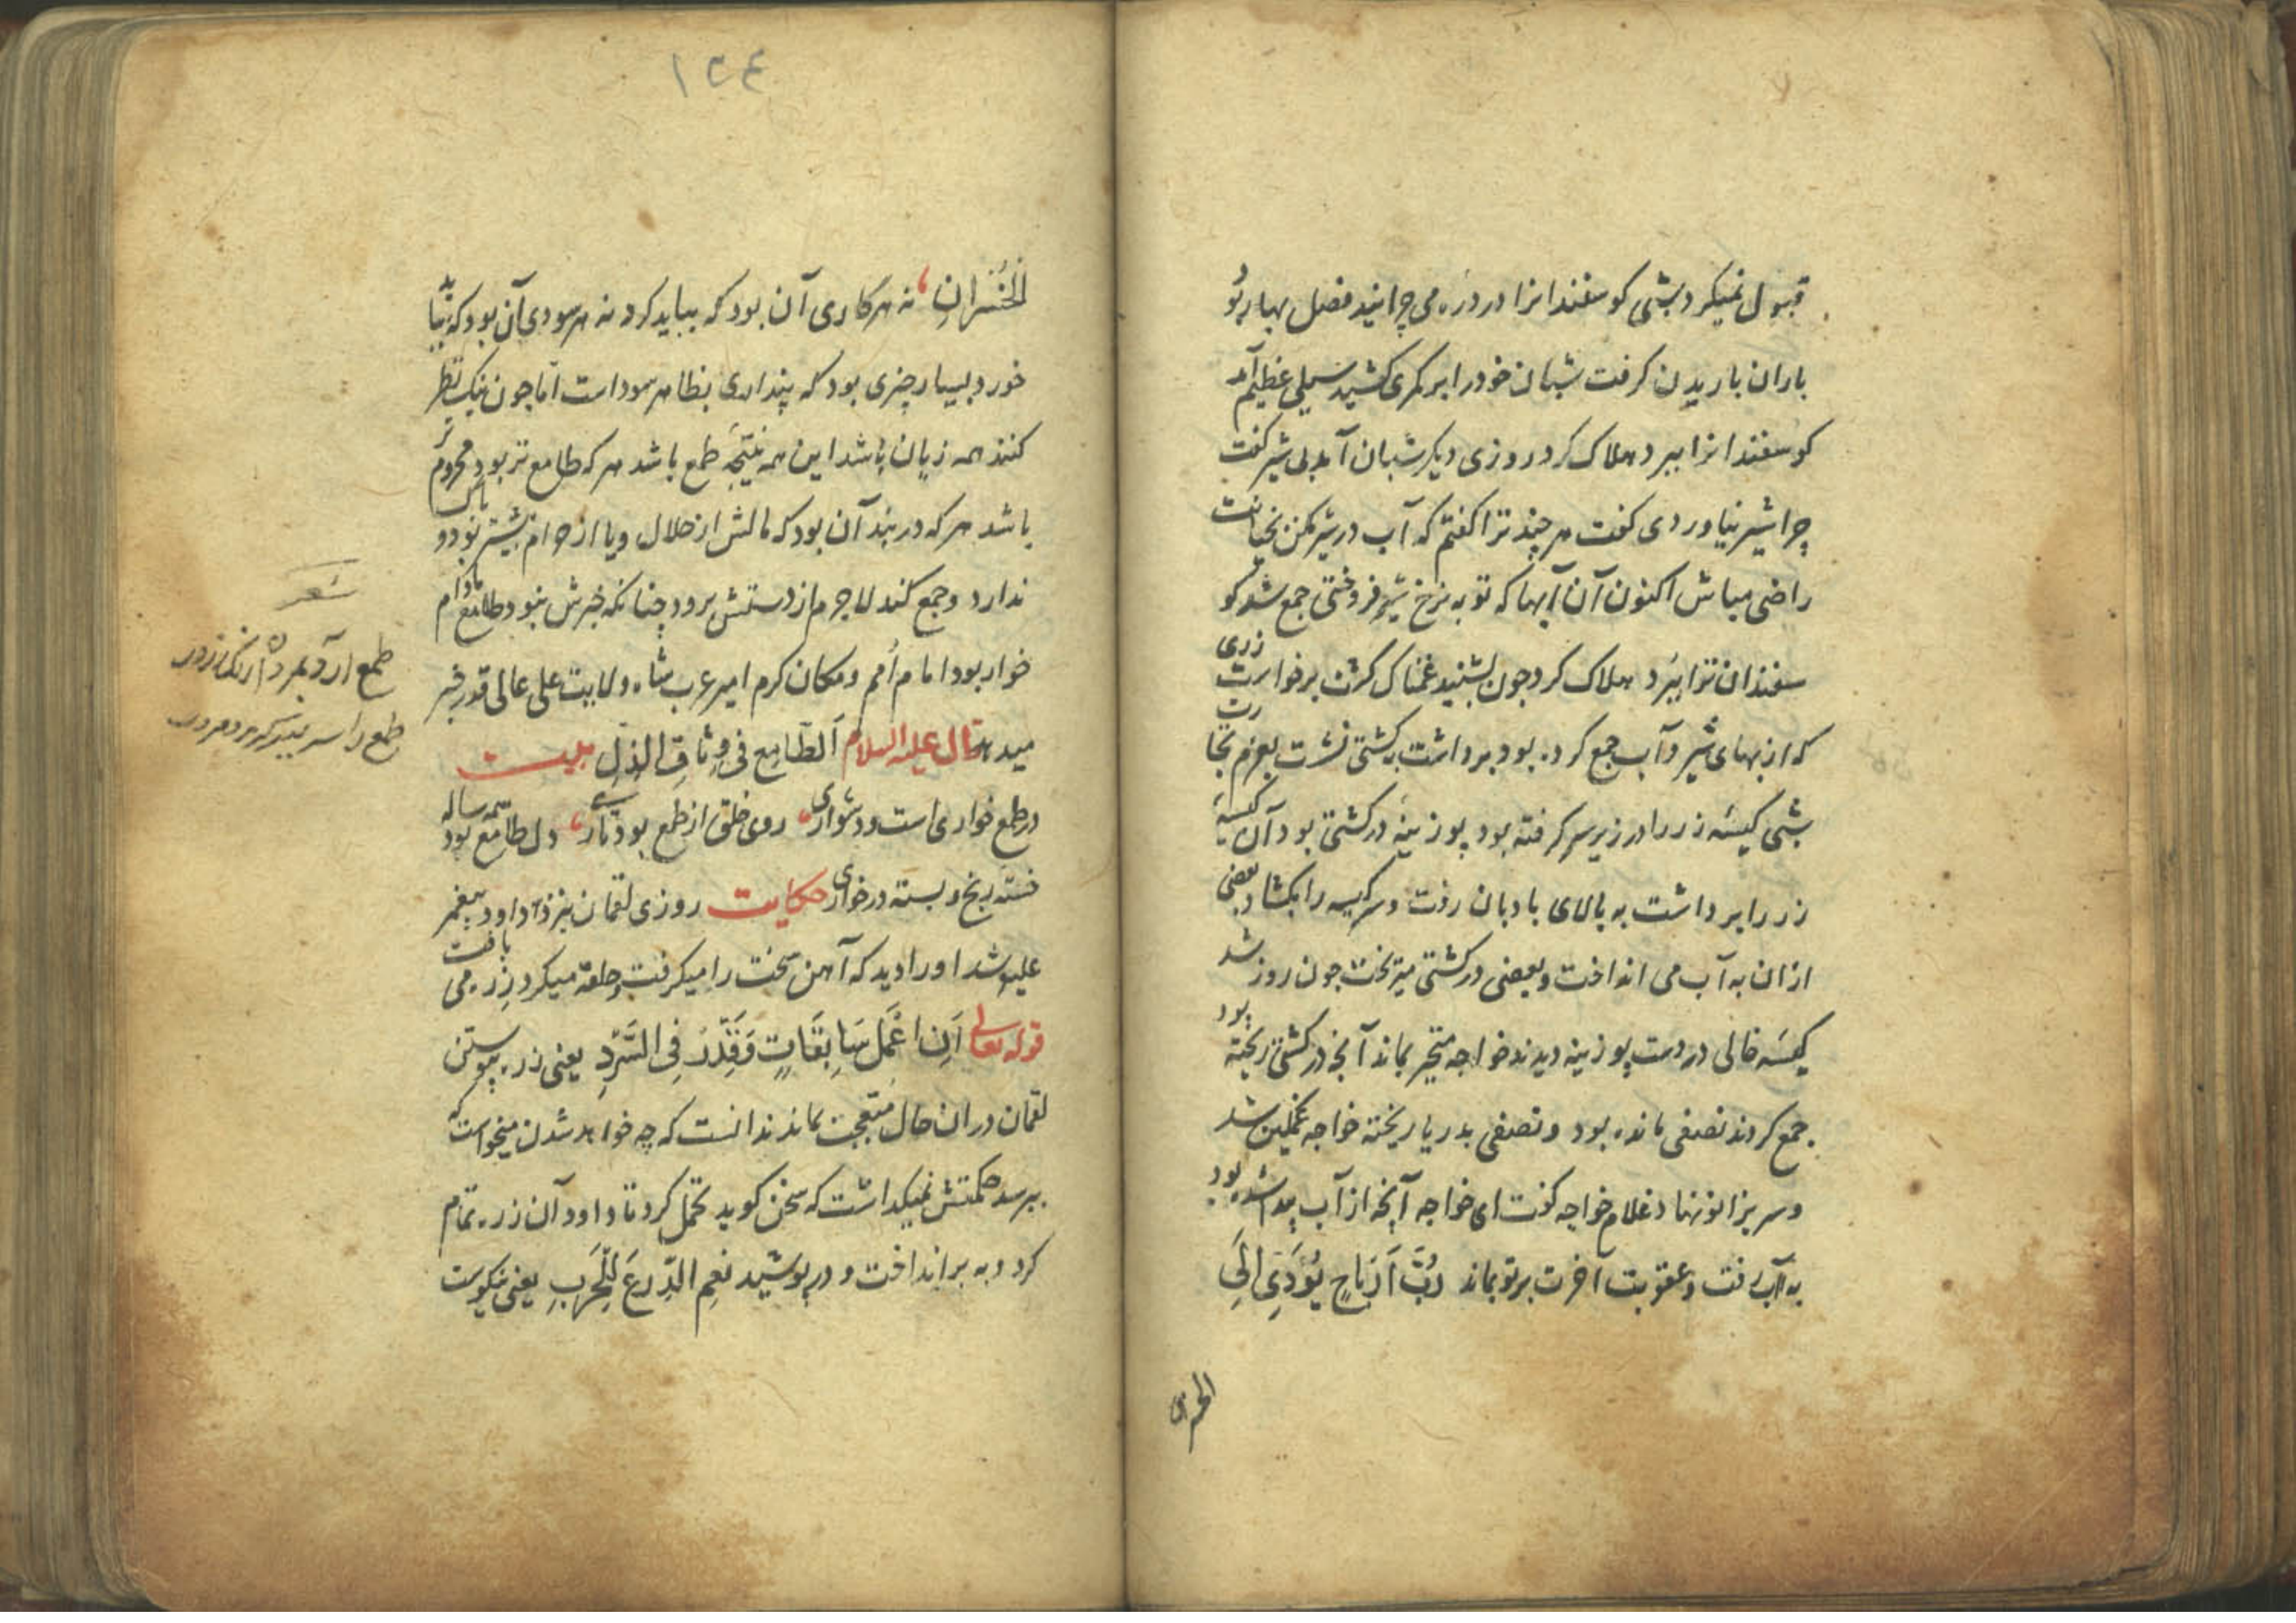 قبول نمیکرد شبی کوسفندانرا در دره می چرانید فصل بهار بود
باران باریدن کرفت شبان خود را بر کمری کشید سیلی عظیم آمد
کوسفندانرا ببرد هلاک کرد روزی دیکر شبان آمد بی شیر کفت
چرا شیر نیاوردی کفت هر چند ترا کفتم که آب در شیر مکن بخیانت
راضی مباش اکنون آن آبها که تو به نرخ شیر فروختی جمع شد کو
سفندان ترا ببرد هلاک کرد چون بشنید غمناک کشت برخواست زری
که از بهای شیر و آب جمع کرده بود برداشت به کشتی نشست بعزم تجارت
شبی کیسهٔ زر را در زیر سر کرفته بود پوزینهٔ در کشتی بود آن کیسهٔ
زر را برداشت به بالای بادبان رفت و سر کیسه را بکشاد بعضی
ازان به آب می انداخت و بعضی در کشتی میریخت چون روز شد
کیسهٔ خالی در دست پوزینه دیدند خواجه متحیر بماند آنچه در کشتی ریخته بود
جمع کردند نصفی مانده بود و نصفی بدریا ریخته خواجه غمکین شد
و سر بزانو نهاد غلام خواجه کفت ای خواجه آنچه از آب پیدا شده بود
به آب رفت و عقوبت آخرت بر تو بماند رُبَّ اَرْبَاحٍ یُؤَدِّی اِلَی
الخسران
١٢٤
الْخُسْرانِ نه هر کاری آن بود که بباید کرد نه هر سودی آن بود که بباید
خورد بسیار چیزی بود که پنداری بظاهر سود است امّا چون نیک نظر
کنند همه زیان باشد این همه نتیجهٔ طمع باشد هر که طامع تر بود محروم تر
باشد هر که در بند آن بود که مالش از حلال و یا از حرام بیشتر بود و باک
ندارد و جمع کند لاجرم از دستش برود چنانکه خبرش نبود و طامع مادام
خوار بود امام اُمم و مکان کرم امیر عرب شاه ولایت علی عالی قدر خبر
میدهد قال علیه السلام اَلطّامِع فی وِثاقِ الذِلِّ بیت
در طمع خواری است و دشواری روی خلق از طمع بود تاری دل طامع بود همه ساله
خستهٔ رنج و بسته در خواری حکایت روزی لقمان بنزد داود پیغمبر
علیه شد او را دید که آهن سخت را میکرفت و حلقه میکرد زره می بافت
قوله تعالی اَنِ اعْمَلْ سَابِغَاتٍ وَقَدِّرْ فِی السَّرْدِ یعنی زره پیوستن
لقمان دران حال متعجب بماند ندانست که چه خواهد شدن میخواست که
بپرسد حکمتش نمیکذاشت که سخن کوید تحمل کرد تا داود آن زره تمام
کرد و به بر انداخت و در پوشید نِعْمَ الدِّرعَ لِلْحَرَبِ یعنی نیکوست
شعر
طمع را سر ببر کر مرد مردی